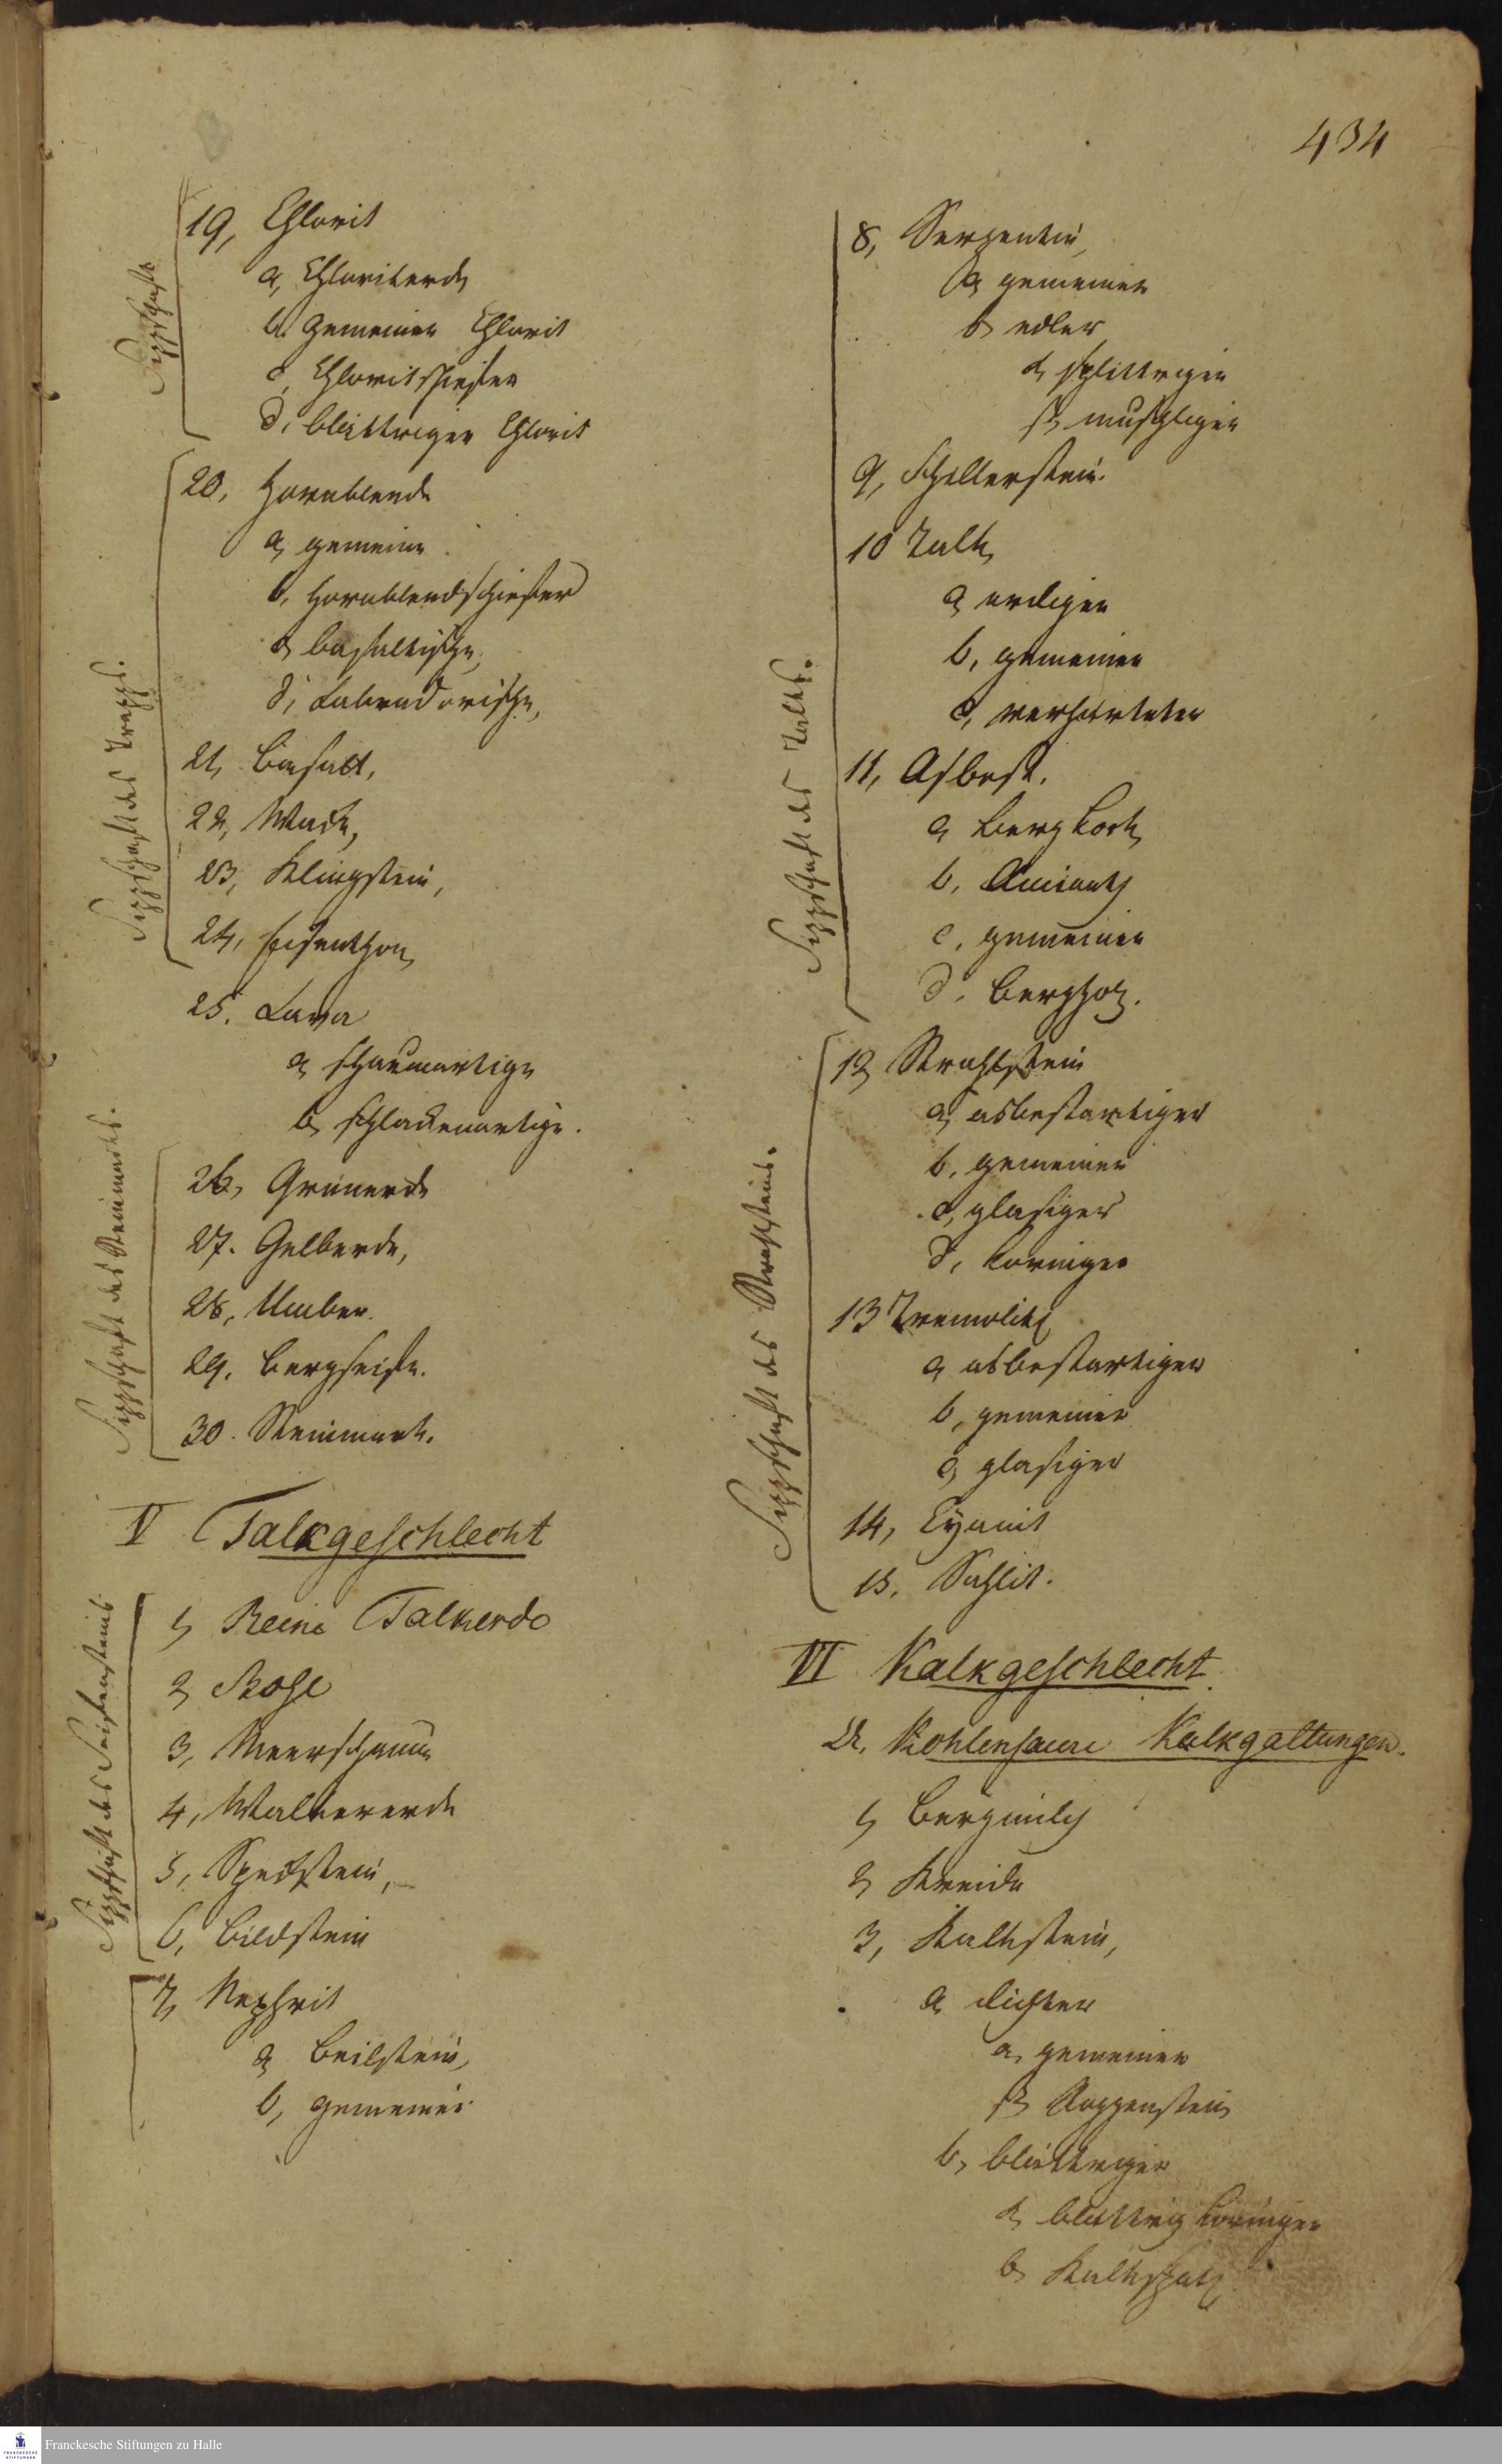 434
Sippschaft
19, Chlorit
a, Chloriterde
b. Gemeiner Chlorit
c, Chloritschiefer
d. blättriger Chlorit
Sippschaft des Trapps.
20, Hornblende
a, gemeine
b, Hornblendschiefer
c, basaltische,
d, Labradorische,
21, Basalt,
22, Wacke,
23, Klingstein,
24, Eisenthon,
25. Lava
a, schaumartige
b, schlackenartige.
Sippschaft des Steinmarks.
26, Grünerde
27. Gelberde,
28, Umber.
29. Bergseife.
30. Steinmark.
V Talkgeschlecht
Sippschaft des Seifensteins
1, Reine Talkerde
2, Bole
3, Meerschaum
4, Walkererde
5, Speckstein,
6, Bildstein
7, Nephrit
a, Beilstein,
b, gemeiner
Sippschaft des Talks.
8, Serpentin,
a, gemeiner
b, edler
α, splittriger
β, muschliger
9, Schillerstein.
10 Talk,
a, erdiger
b, gemeiner
c, verhärteter
11, Asbest.
a, Bergkork,
b, Amianth
c, gemeiner
d. Bergholz.
Sippschaft des Strahlsteins.
12, Strahlstein
a, asbestartiger
b, gemeiner
c, glasiger
d, körniger
13 Tremolith
a, asbestartiger
b, gemeiner
c, glasiger
14, Cyanit
15. Sahlit.
VI Kalkgeschlecht.
A. Kohlensaure Kalkgattungen.
1, Bergmilch
2, Kreide
3, Kalkstein,
a, dichter
α, gemeiner
β, Roggenstein
b, blättriger
α, blättrig körniger
b, Kalkspath
Franckesche Stiftungen zu Halle
FRANCKESCHE
STIFTUNGEN